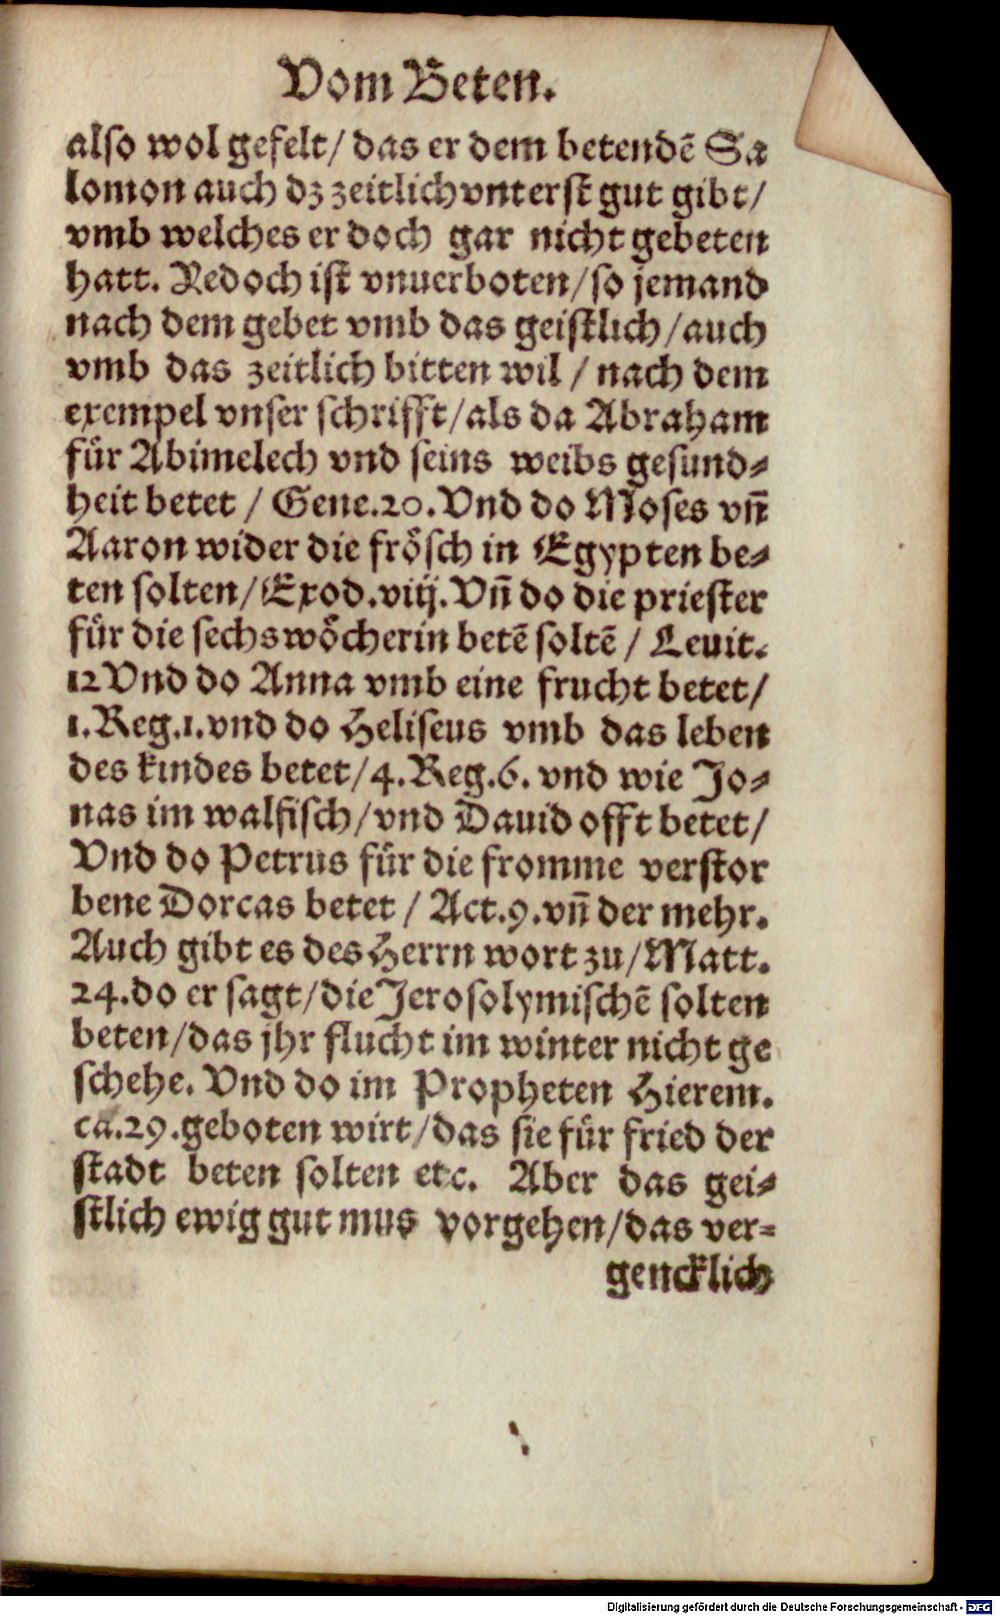 Vom Beten.
also wol gefelt/ das er dem betendē Sa
lomon auch dz zeitlich vnterst gut gibt/
vmb welches er doch gar nicht gebeten
hatt. Jedoch ist vnuerboten/ so jemand
nach dem gebet vmb das geistlich/ auch
vmb das zeitlich bitten wil / nach dem
exempel vnser schrifft/ als da Abraham
für Abimelech vnd seins weibs gesund-
heit betet / Gene.20. Vnd do Moses vn̄
Aaron wider die frösch in Egypten be-
ten solten/ Exod.viij. Vn̄ do die priester
für die sechswöcherin betē soltē / Leuit.
12 Vnd do Anna vmb eine frucht betet/
1. Reg.1. vnd do Heliseus vmb das leben
des kindes betet/ 4. Reg.6. vnd wie Jo-
nas im walfisch/ vnd Dauid offt betet/
Vnd do Petrus für die fromme verstor
bene Dorcas betet / Act.9. vn̄ der mehr.
Auch gibt es des Herrn wort zu/ Matt.
24. do er sagt/ die Jerosolymischē solten
beten/ das jhr flucht im winter nicht ge
schehe. Vnd do im Propheten Hierem.
ca.29. geboten wirt/ das sie für fried der
stadt beten solten etc. Aber das gei-
stlich ewig gut mus vorgehen/ das ver-
gencklich
Digitalisierung gefördert durch die Deutsche Forschungsgemeinschaft - DFG